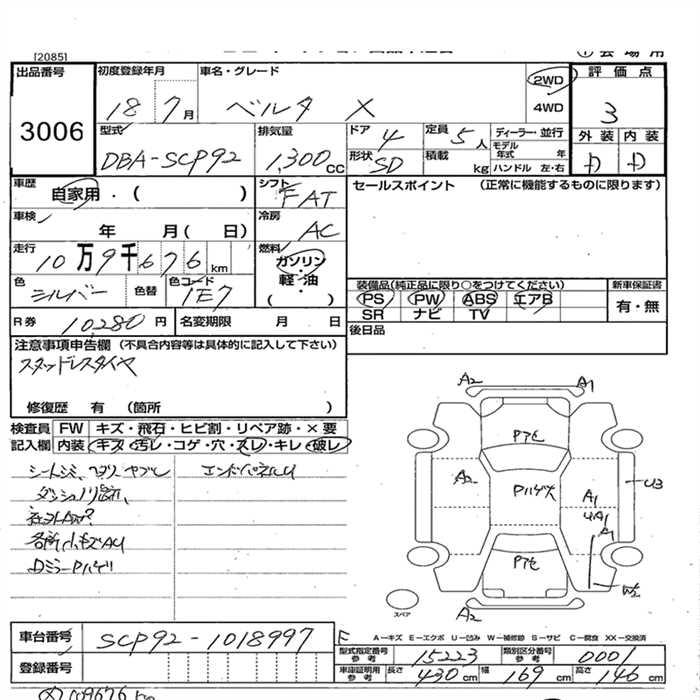 [2085]
出品番号 初度登録年月 車名・グレード 2WD 評価点
3006 18 7月 ベルタ X 4WD 3
型式 排気量 ドア 4 定員 5人 ディーラー・並行 外装 内装
DBA-SCP92 1,300cc 形状 SD 積載 kg モデル年式 年 ハンドル 左・右 D D
車歴 自家用・( ) シフト FAT セールスポイント (正常に機能するものに限ります)
車検 年 月(日) 冷房 AC
走行 10万9千676km 燃料 ガソリン・軽油 ( )
色 シルバー 色替 色コード 1E7 装備品(純正品に限り○をつけてください) 新車保証書
PS PW ABS エアB 有・無
SR ナビ TV
R券 10,280円 名変期限 月 日 後日品
注意事項申告欄 (不具合内容等は具体的に記入して下さい)
スタッドレスタイヤ
修復歴 有 (箇所 )
検査員記入欄 FW キズ・飛石・ヒビ割・リペア跡・×要
内装 キズ・汚レ・コゲ・穴・スレ・キレ・破レ
エンドパネルU
A2 A1
Pアセ
A2 Pハゲ大 A1 U3
UA1
A1
Pアセ
W2
A2
スペア
A-キズ E-エクボ U-凹み W-補修跡 S-サビ C-腐食 XX-交換済
車台番号 SCP92-1018997 F 型式指定番号参考 15223 類別区分番号参考 0001
登録番号 車庫証明用参考 長さ 430cm 幅 169cm 高さ 146cm